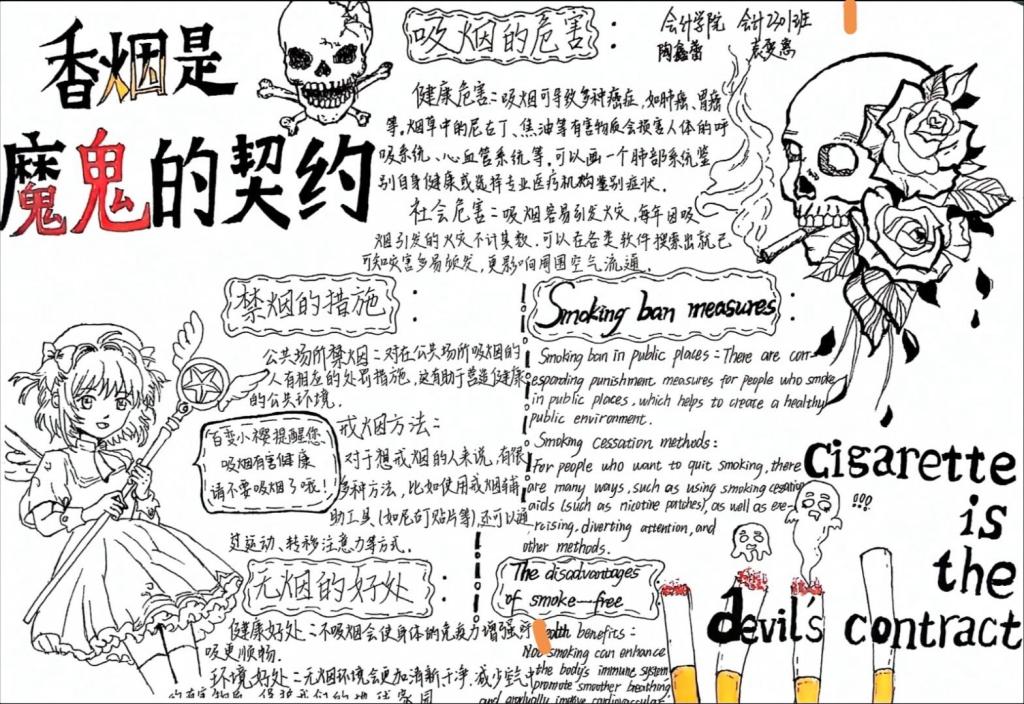 香烟是
魔鬼的契约
吸烟的危害：
会计学院 会计2301班
陶鑫蕾
健康危害：吸烟可导致多种癌症，如肺癌、胃癌
等。烟草中的尼古丁、焦油等有害物质会损害人体的呼
吸系统、心血管系统等。可以画一个肺部系统鉴
别自身健康或选择专业医疗机构鉴别症状。
社会危害：吸烟容易引发火灾，每年因吸
烟引发的火灾不计其数，可以在各类软件搜索出就已
可知灾害多易频发，更影响周围空气流通。
禁烟的措施：
公共场所禁烟：对在公共场所吸烟的
人有相应的处罚措施，这有助于营造健康
的公共环境。
戒烟方法：
对于想戒烟的人来说，有很
多种方法，比如使用戒烟辅
助工具（如尼古丁贴片等），还可以通
过运动、转移注意力等方式。
百变小樱提醒您
吸烟有害健康
请不要吸烟了哦！
无烟的好处：
健康好处：不吸烟会使身体的免疫力增强，呼
吸更顺畅。
环境好处：无烟环境会更加清新干净，减少空气中
Smoking ban measures：
Smoking ban in public places：There are corr-
esponding punishment measures for people who smoke
in public places, which helps to create a healthy
public environment.
Smoking cessation methods：
For people who want to quit smoking, there
are many ways, such as using smoking cessation
aids (such as nicotine patches), as well as exe-
rcising, diverting attention, and
other methods.
The disadvantages
of smoke-free：
Health benefits：
Not smoking can enhance
the body's immune system
promote smoother breathing,
and gradually improve cardiovascular
cigarette
is
the
devil's contract
!!!